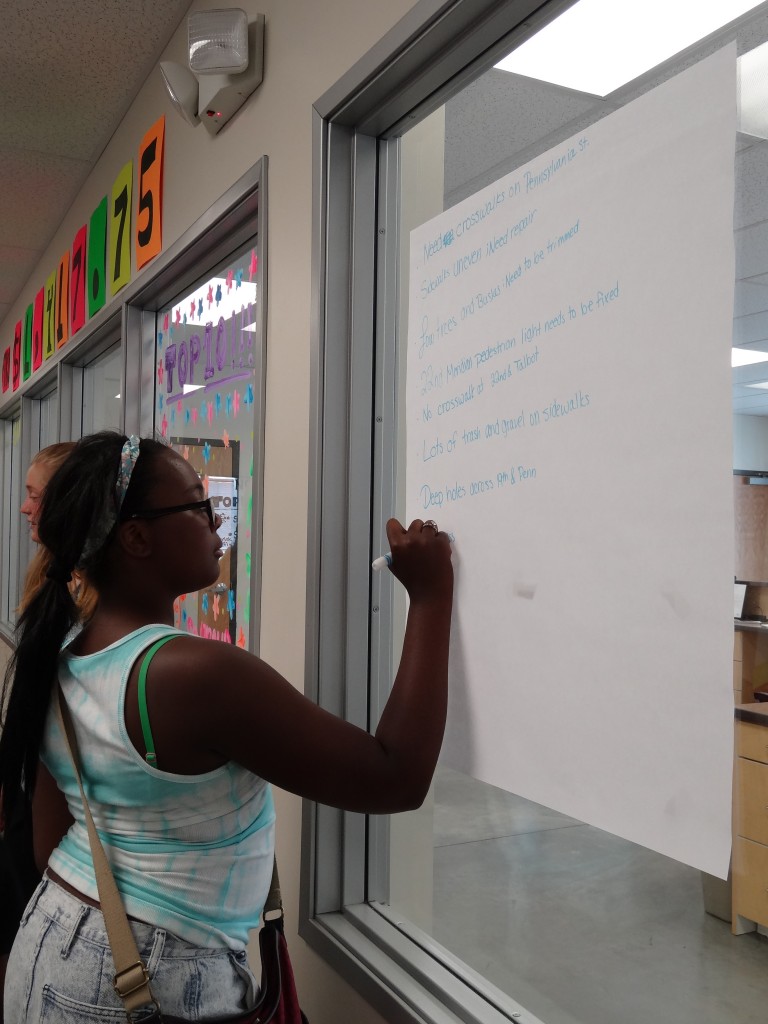 Need crosswalks on Pennsylvania St.
Sidewalks uneven Need repair
Low trees and Bushes Need to be trimmed
22nd Meridian pedestrian light needs to be fixed
No crosswalk at 22nd & Talbot
Lots of trash and gravel on sidewalks
Deep holes across 19th & Penn
7.75
TOP 10